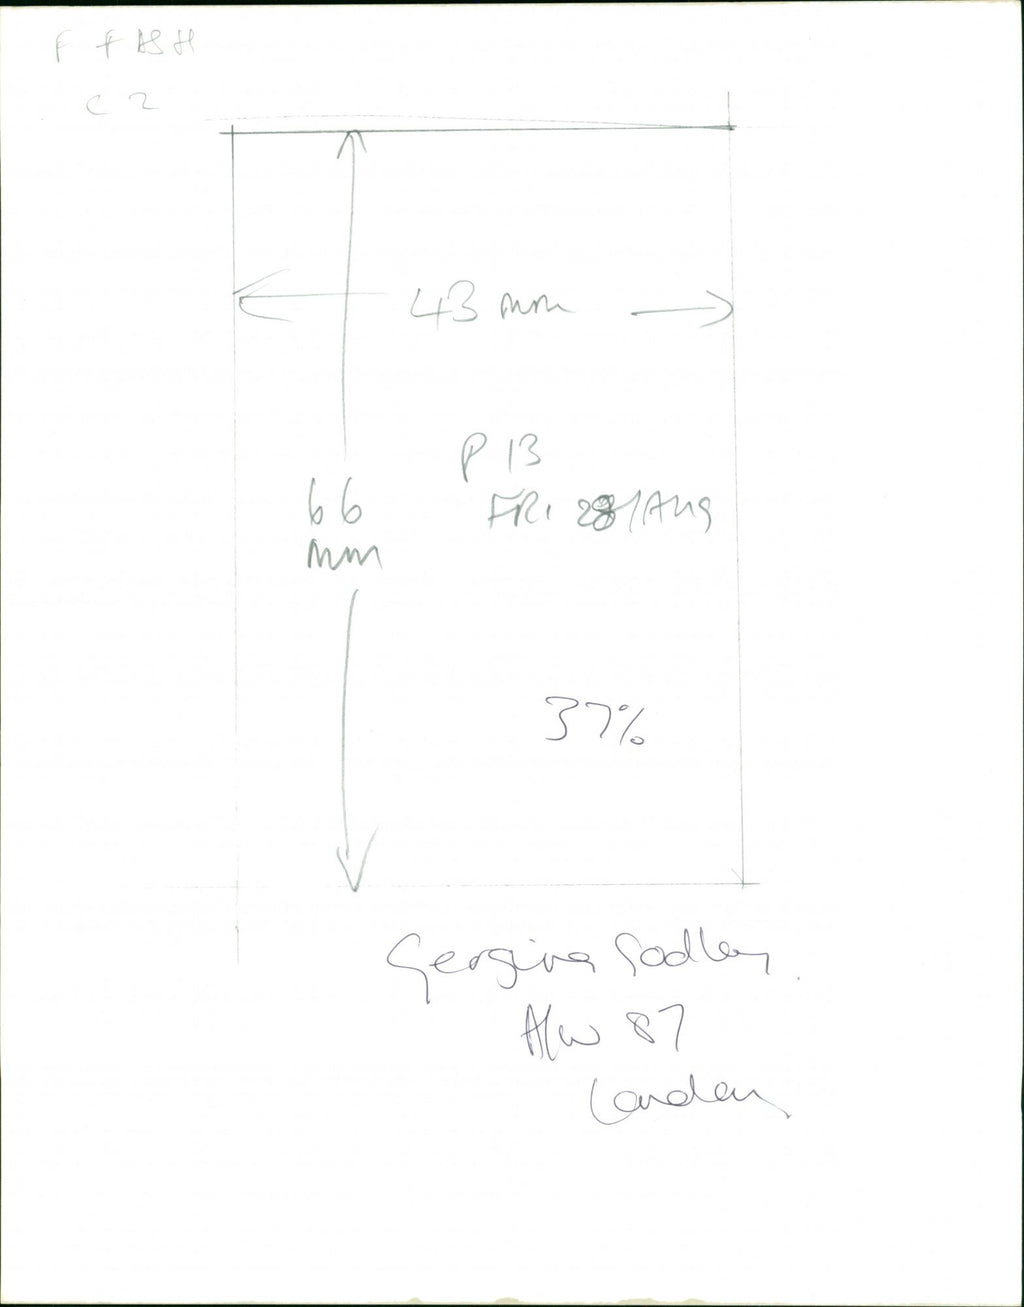 F FASH
C 2
43 mm
P 13
FRI 28/Aug
66
mm
37%
Georgina Godley
A/W 87
London